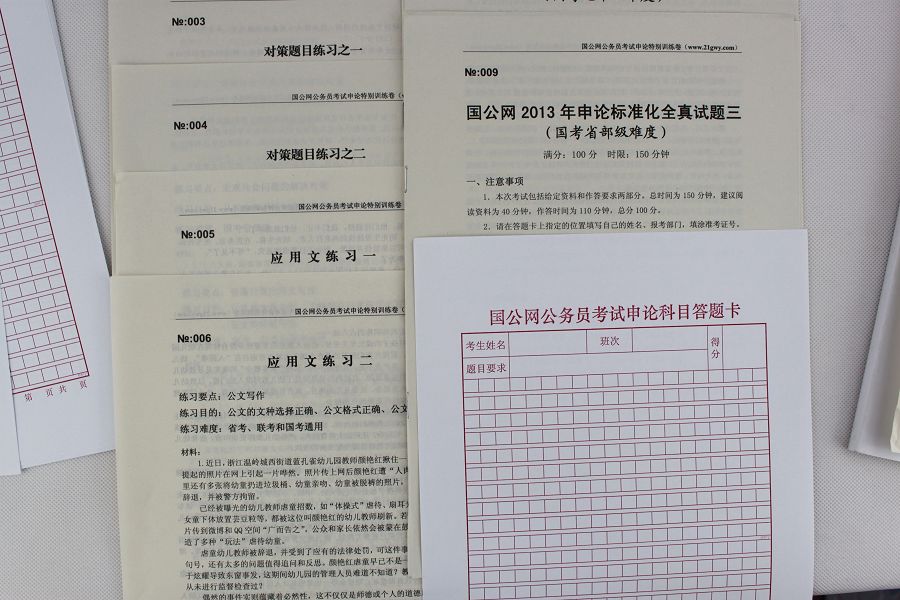 №:003
对策题目练习之一
国公网公务员考试申论特别训练卷
№:004
对策题目练习之二
国公网公务员考试申论特别训练卷
№:005
应用文练习一
国公网公务员考试申论特别训练卷
№:006
应用文练习二
练习要点：公文写作
练习目的：公文的文种选择正确、公文格式正确、公文
练习难度：省考、联考和国考通用
材料：
1.近日，浙江温岭城西街道蓝孔雀幼儿园教师颜艳红揪住一
提起的照片在网上引起一片哗然。照片传上网后颜艳红遭“人肉
里还有多张将幼童扔进垃圾桶、幼童亲吻、幼童被脱裤的照片，
辞退，并被警方拘留。
已经被曝光的幼儿教师虐童招数，如“体操式”虐待、扇耳光
女童下体放置芸豆粒等，都被这位叫颜艳红的幼儿教师刷新。若
片传到微博和QQ空间“广而告之”，公众和家长依然会被蒙在鼓
造了多种“玩法”虐待幼童。
虐童幼儿教师被辞退，并受到了应有的法律处罚，可这件事
句号，还有太多的问题值得追问和反思。颜艳红虐童早已不是一
于炫耀导致东窗事发，这期间幼儿园的管理人员难道不知道？教
从未进行监督检查过？
偶然的事件实则蕴藏着必然性，这不仅仅是师德或个人的道德
国公网公务员考试申论特别训练卷（www.21gwy.com）
№:009
国公网 2013 年申论标准化全真试题三
（国考省部级难度）
满分：100 分 时限：150 分钟
一、注意事项
1．本次考试包括给定资料和作答要求两部分。总时间为 150 分钟，建议阅
读资料为 40 分钟，作答时间为 110 分钟，总分 100 分。
2．请在答题卡上指定的位置填写自己的姓名、报考部门，填涂准考证号。
国公网公务员考试申论科目答题卡
考生姓名
班次
得分
题目要求
第 页 共 页